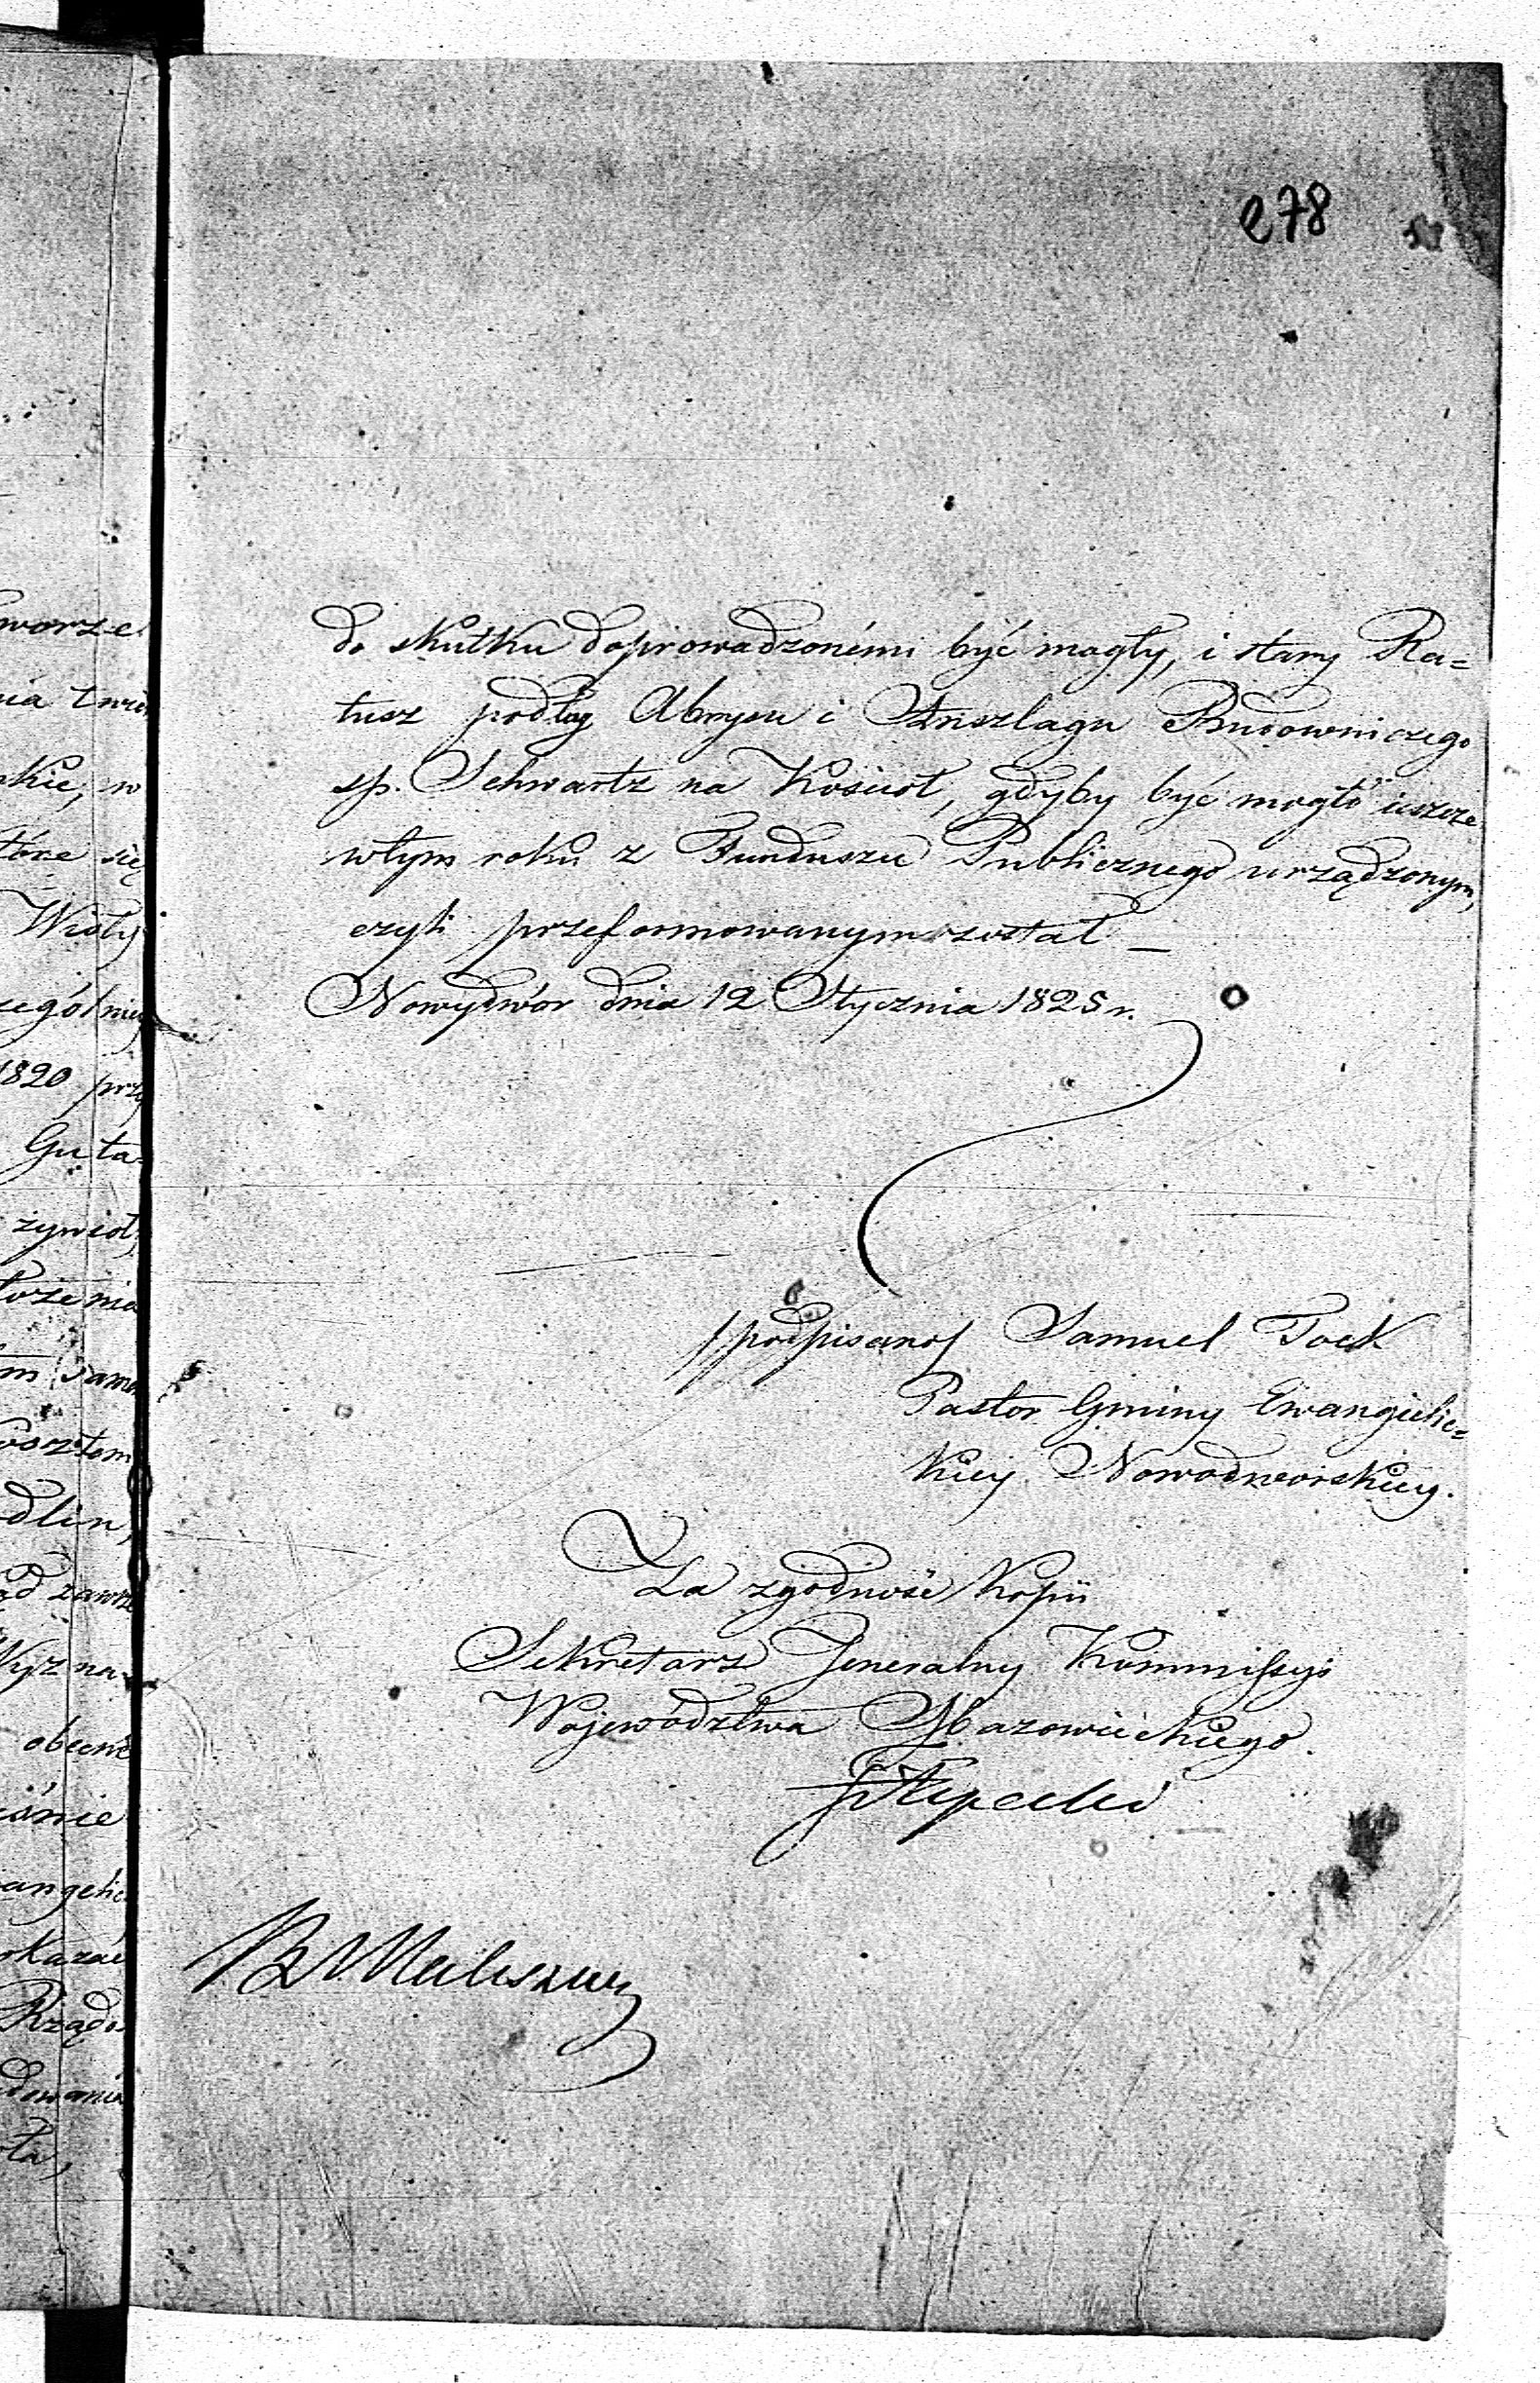 278
do skutku doprowadzonémi być mogły, i stary Ra=
tusz podług Abrysu i Anszlagu Budowniczego
sp. Schwartz na Kościoł, gdyby być mogło ieszcze
wtym roku z Funduszu Publicznego urządzonym,
czyli przeformowanym został _
Nowydwór dnia 12 Stycznia 1825 r.
/podpisano/ Samuel Tock
Pastor Gminy Ewangielic=
kiey Nowodworskiey.
Za zgodność Kopii
Sekretarz Jeneralny Kommissyi
Województwa Mazowieckiego.
worze
nia
skie, w
które się
Wisły
zególniey
1820 przy
Guta=
żywioł,
łożenia
m sama
osztem
dlin,
ąd zawsze
Wyzna=
obecne
iśnie
angelic
okazać
Rządo=
dowania
ła,